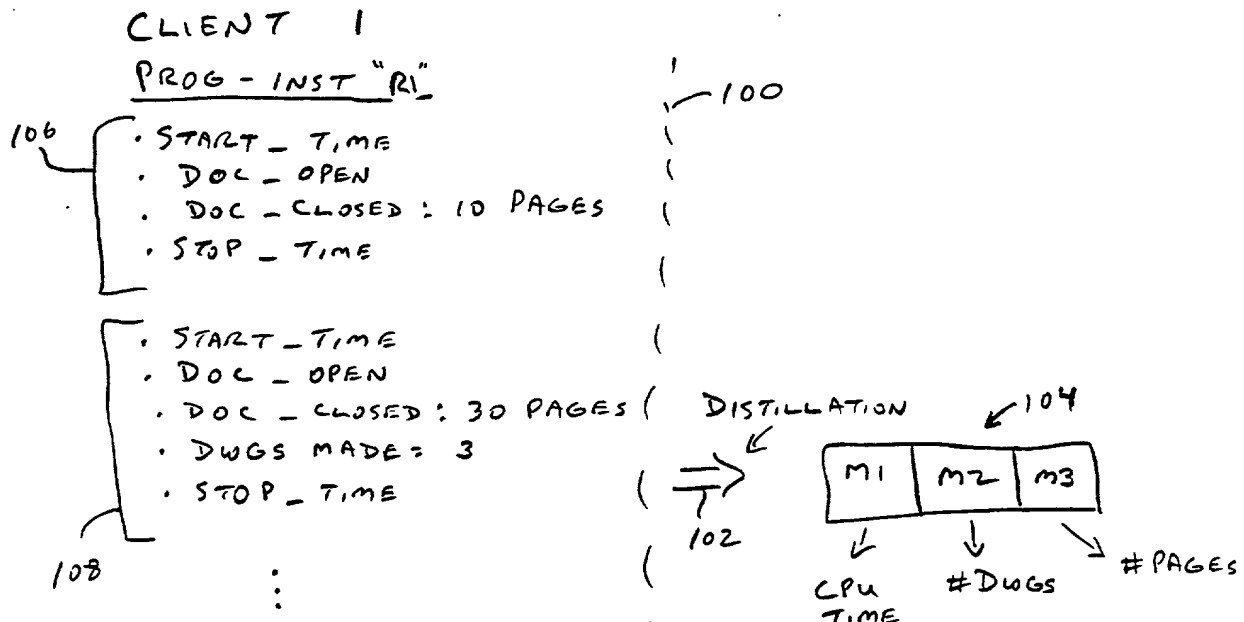 CLIENT 1
PROG - INST "R1"
100
106
· START _ TIME
· DOC _ OPEN
· DOC _ CLOSED : 10 PAGES
· STOP _ TIME
· START _ TIME
· DOC _ OPEN
· DOC _ CLOSED : 30 PAGES
· DWGS MADE = 3
· STOP _ TIME
108
DISTILLATION
102
104
M1 M2 M3
CPU TIME
#DWGS
#PAGES